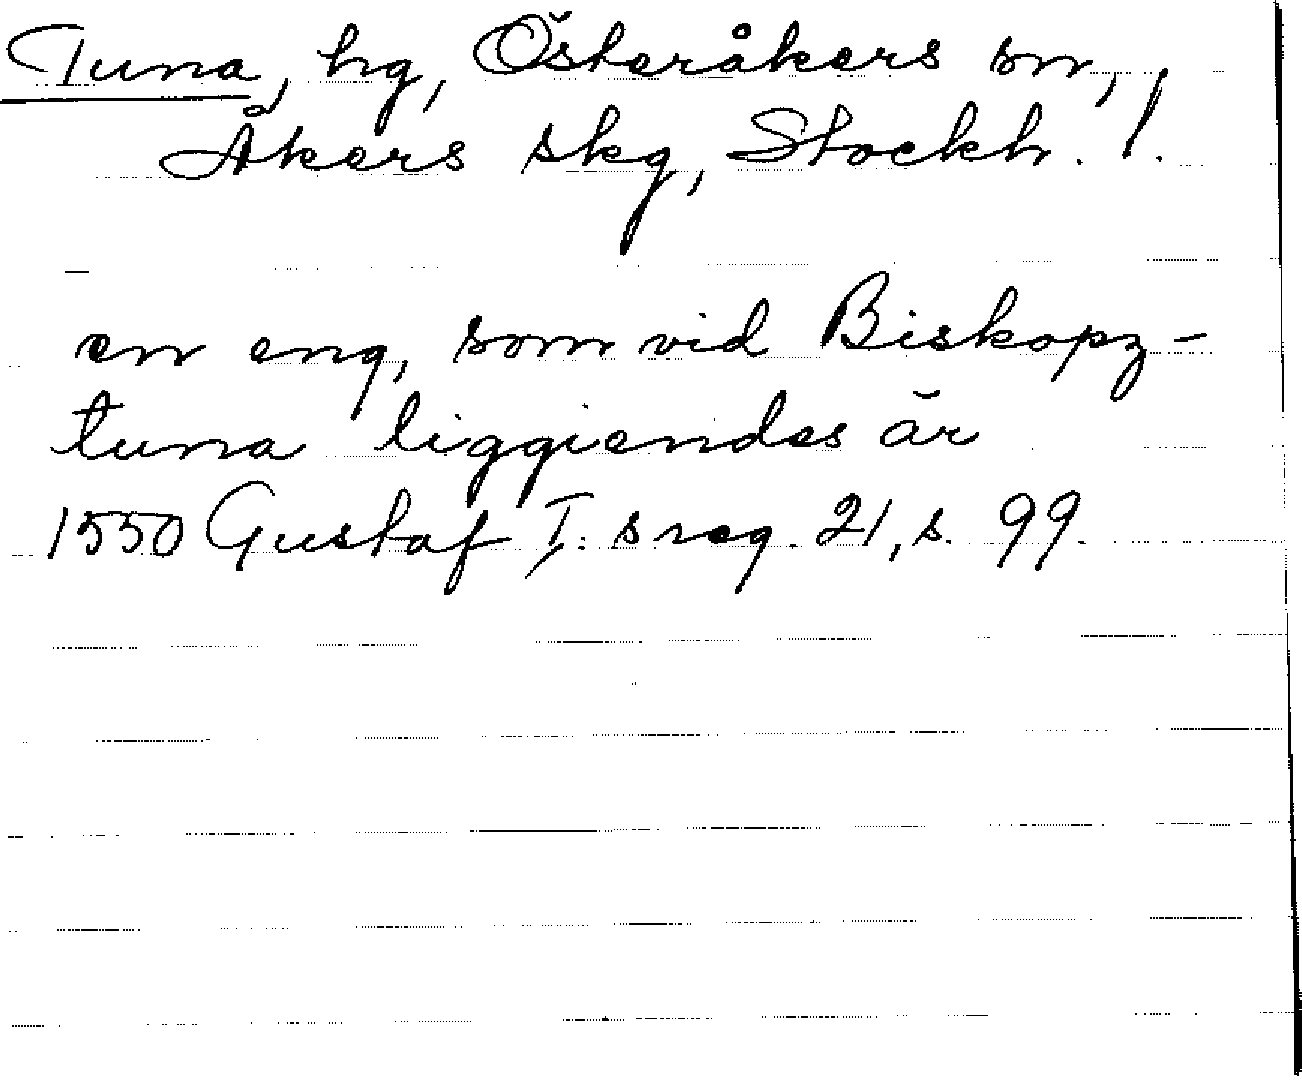 Tuna, hg, Österåkers sn,
Åkers skg, Stockh. l.
en eng, som vid Biskopz-
tuna liggiendes är
1550 Gustaf I:s reg. 21, s. 99.